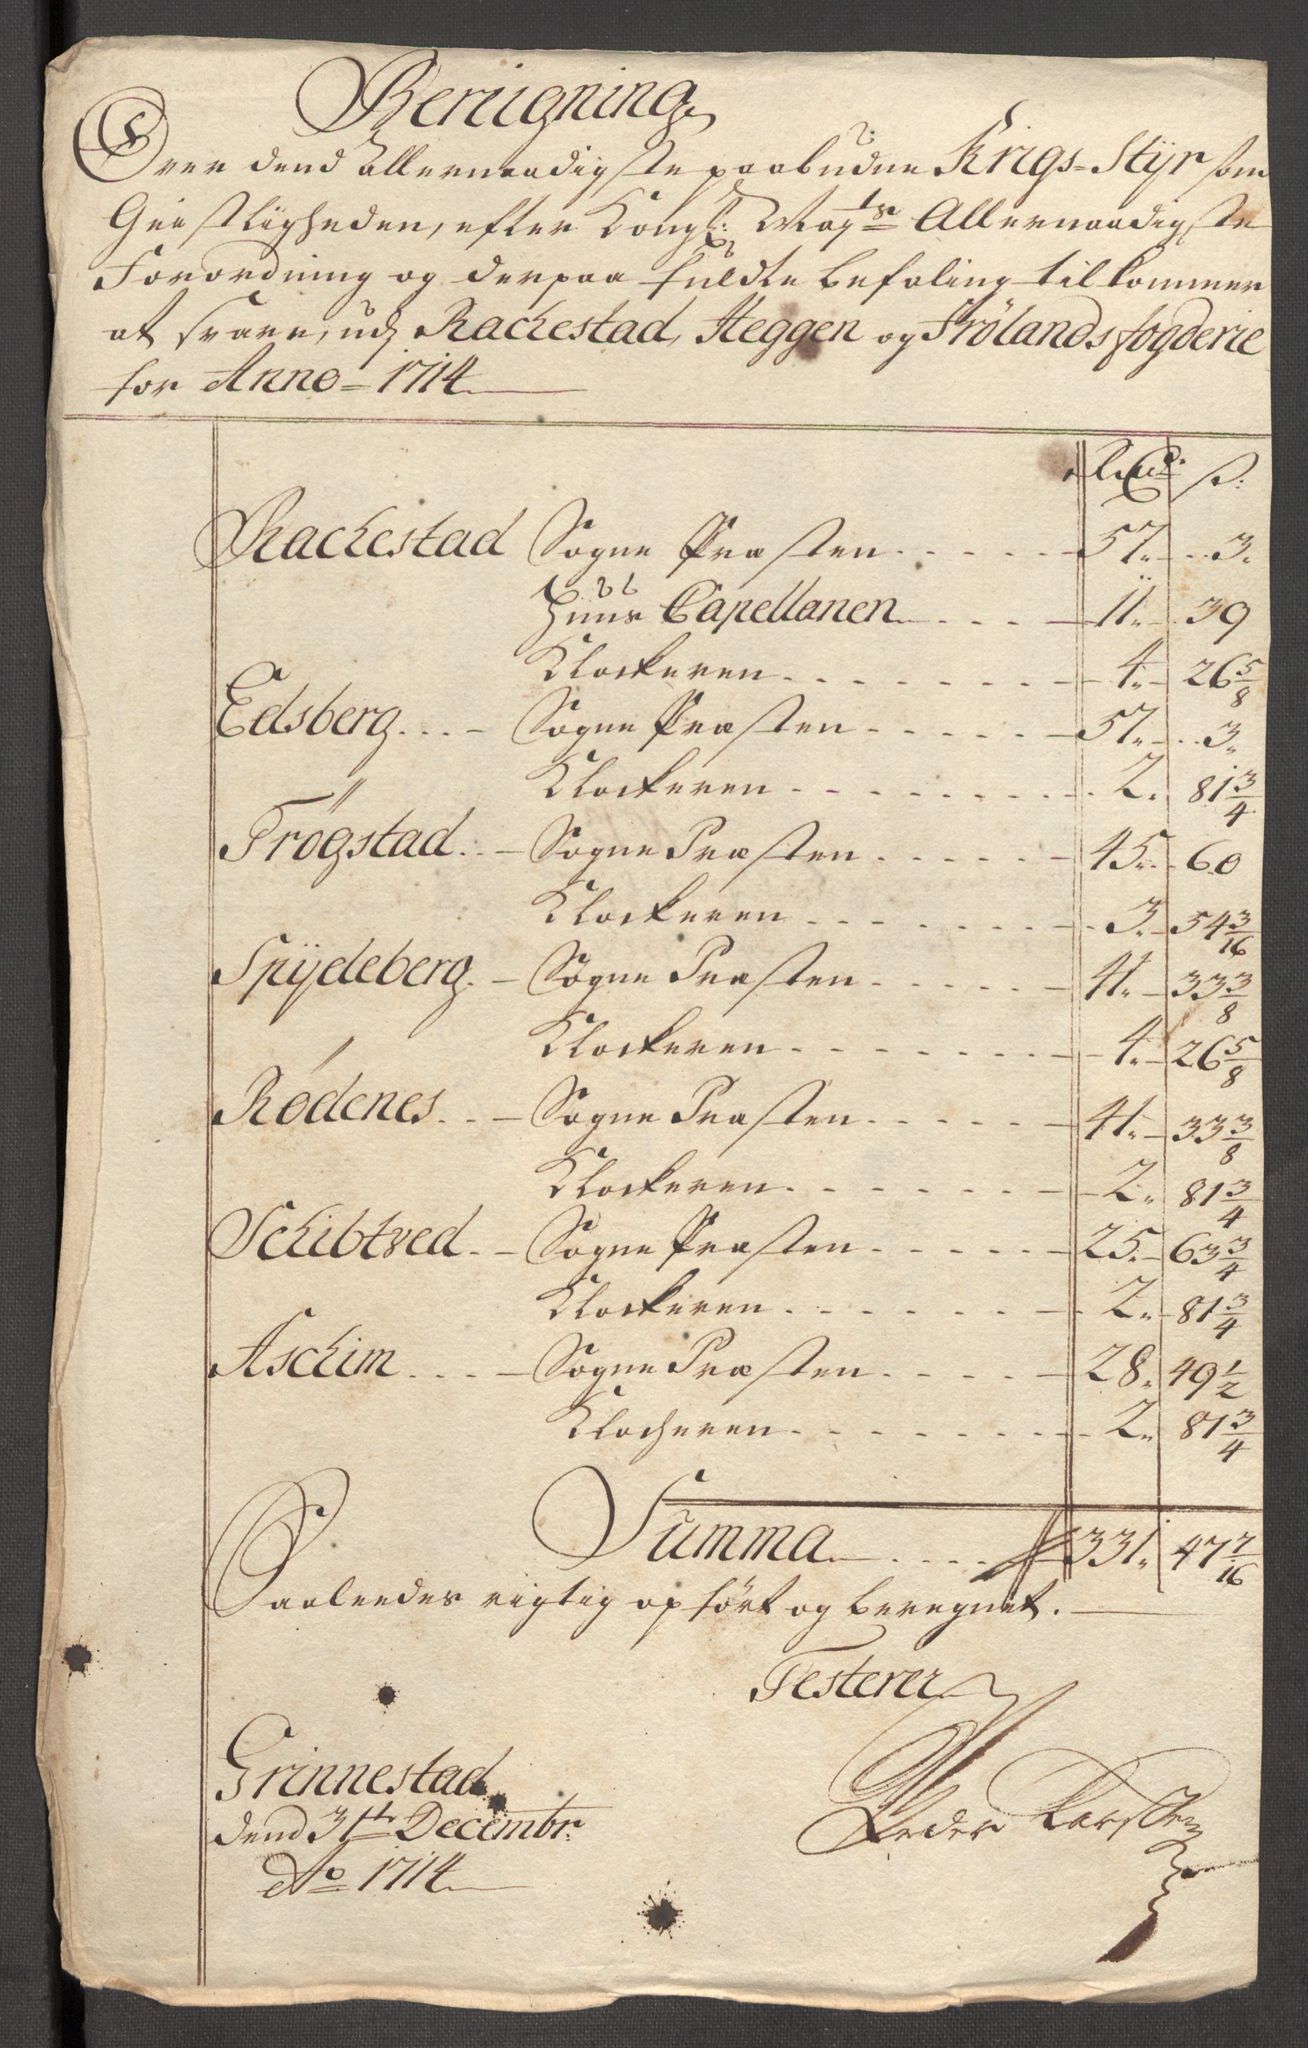 Bereigning
Over dend allernaadigste paabudne Krigs-Styr som
Geistligheden, efter Kongl: Mayts Allernaadigste
Forordning og derpaa fuldte befaling tilkommer
at svare, udj Rachestad, Heggen og Frølands fogderie
for Anno = 1714
Rdr. s:
Rachestad Sogne Præsten 57. 3.
Huus Capellanen 11. 39
Klockeren 4. 26 5/8
Edsberg Sogne Præsten 57. 3.
Klockeren 2. 81 3/4
Trøgstad Sogne Præsten 45. 60
Klockeren 3. 54 3/16
Spÿdeberg Sogne Præsten 41. 33 3/8
Klockeren 4. 26 5/8
Rødenes Sogne Præsten 41. 33 3/8
Klockeren 2. 81 3/4
Schibtved Sogne Præsten 25. 63 3/4
Klockeren 2. 81 3/4
Aschim Sogne Præsten 28. 49 1/2
Klocheren 2. 81 3/4
Summa 331. 47 7/16
Saaleedes rigtig opført og beregnet.
Testerer
Grinnestad
dend 31te Decembr.
Ao 1714
Peder Karsten